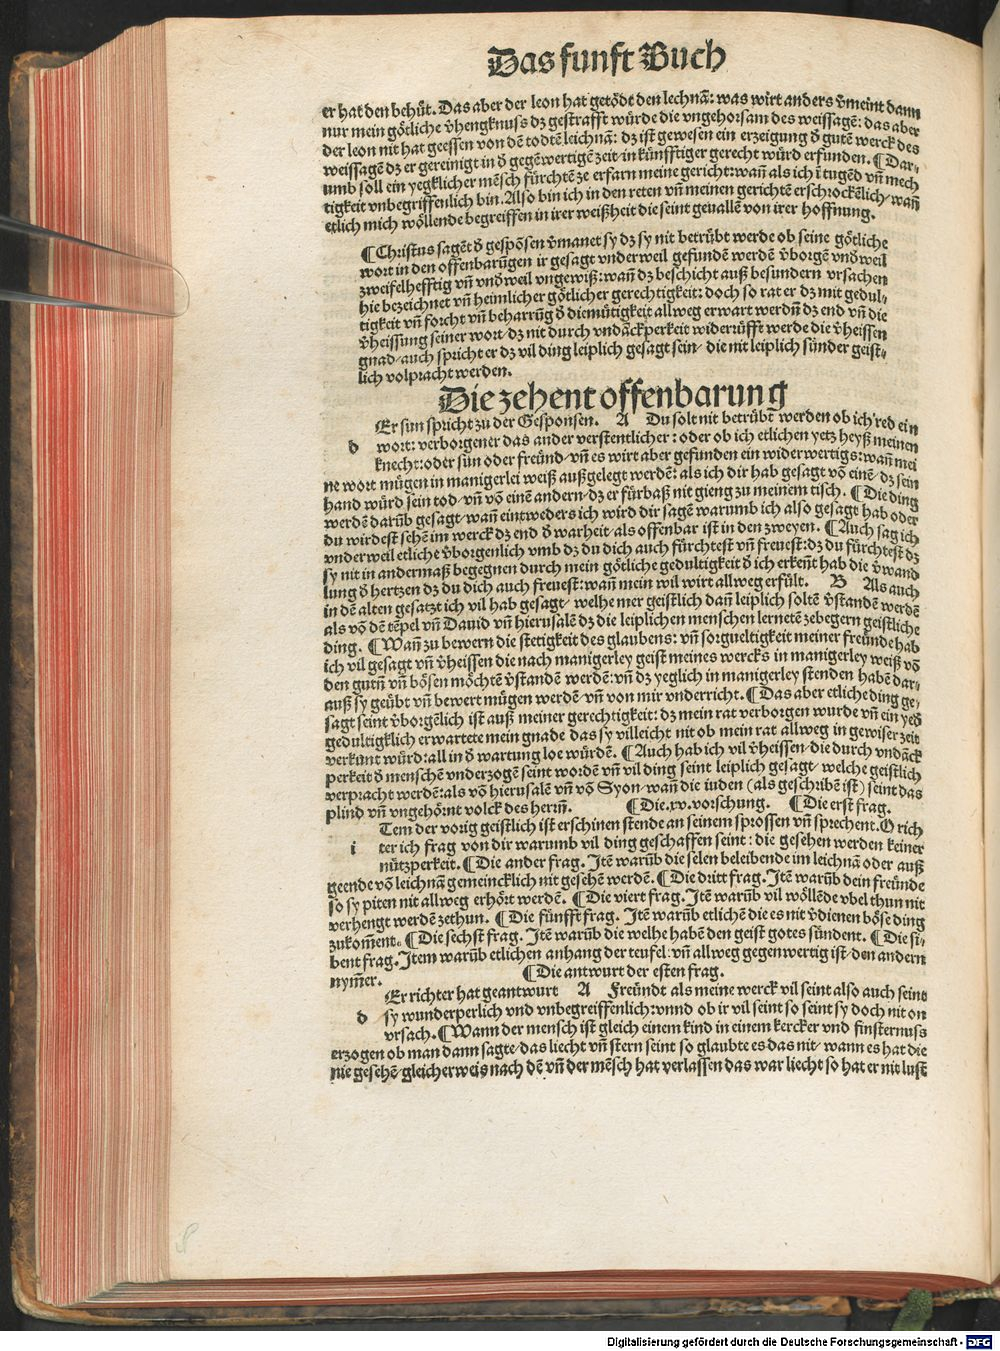 Das funft Buch
er hat den behüt. Das aber der leon hat getödt den lechnā: was wirt anders v̄meint dann
nur mein götliche v̄hengknuſs dz geſtrafft würde die vngehorſam des weiſſagē: das aber
der leon nit hat geeſſen von dē todtē leichnā: dz iſt geweſen ein erzeigung d̄ gutē werck des
weiſſagē dz er gereinigt in d̄ gegēwertigē zeit/ in künfftiger gerecht würd erfunden. ¶ Dar⸗
umb ſoll ein yegklicher mēſch fürchtē ze erfarn meine gericht: wan̄ als ich ī tugēd vn̄ mech
tigkeit vnbegriffenlich bin. Alſo bin ich in den reten vn̄ meinen gerichtē erſchrockēlich/ wan̄
etlich mich wöllende begreiffen in irer weißheit die ſeint geuallē von irer hoffnung.
¶ Chriſtus ſagēt d̄ geſpōſen v̄manet ſy dz ſy nit betrübt werde ob ſeine götliche
wort in den offenbarūgen ir geſagt vnderweil gefundē werdē v̄borgē vnd̄weil
zweifelhefftig vn̄ vnd̄weil vngewiß: wan̄ dz beſchicht auß beſundern vrſachen
hie bezeichnet vn̄ heimlicher götlicher gerechtigkeit: doch ſo rat er dz mit gedul⸗
tigkeit vn̄ forcht vn̄ beharrūg d̄ diemütigkeit allweg erwart werdn̄ dz end vn̄ die
v̄heiſſung ſeiner wort/ dz nit durch vndāckperkeit widerrüfft werde die v̄heiſſen
gnad/ auch ſpricht er dz vil ding leiplich geſagt ſein/ die nit leiplich ſünder geiſt⸗
lich volpracht werden.
Die zehent offenbarung
Er ſun ſpricht zu der Geſponſen. A Du ſolt nit betrübt werden ob ich red ein
d wort: verborgener das ander verſtentlicher: oder ob ich etlichen yetz heyß meinen
knecht: oder ſün oder freünd/ vn̄ es wirt aber gefunden ein widerwertigs: wan̄ mei
ne wort mügen in manigerlei weiß außgelegt werdē: als ich dir hab geſagt vō einē/ dz ſein
hand würd ſein tod/ vn̄ vō einē andern/ dz er fürbaß nit gieng zu meinem tiſch. ¶ Die ding
werdē darūb geſagt/ wan̄ eintweders ich wird dir ſagē warumb ich alſo geſagt hab oder
du wirdeſt ſehē im werck dz end d̄ warheit/ als offenbar iſt in den zweyen. ¶ Auch ſag ich
vnderweil etliche v̄borgenlich vmb dz du dich auch fürchteſt vn̄ freueſt: dz du fürchteſt dz
ſy nit in andermaß begegnen durch mein götliche gedultigkeit d̄ ich erken̄t hab die v̄wand
lung d̄ hertzen dz du dich auch freueſt: wan̄ mein wil wirt allweg erfült. B Als auch
in dē alten geſatzt ich vil hab geſagt/ welhe mer geiſtlich dan̄ leiplich ſoltē v̄ſtandē werdē
als vō dē tēpel vn̄ Dauid vn̄ hieruſalē dz die leiplichen menſchen lernetē zebegern geiſtliche
ding. ¶ Wan̄ zu bewern die ſtetigkeit des glaubens: vn̄ ſorgueltigkeit meiner freünde hab
ich vil geſagt vn̄ v̄heiſſen die nach manigerley geiſt meines wercks in manigerley weiß vō
den gutn̄ vn̄ böſen möchtē v̄ſtandē werdē: vn̄ dz yeglich in manigerley ſtenden habē dar⸗
auß ſy geübt vn̄ bewert mügen werdē/ vn̄ von mir vnderricht. ¶ Das aber etliche ding ge⸗
ſagt ſeint v̄borgēlich iſt auß meiner gerechtigkeit: dz mein rat verborgen wurde vn̄ ein yed̄
gedultigklich erwartete mein gnade/ das ſy villeicht nit ob mein rat allweg in gewiſer zeit
verkünt würd: all in d̄ wartung loe würdē. ¶ Auch hab ich vil v̄heiſſen/ die durch vndāck
perkeit d̄ menſchē vnderzogē ſeint wordē vn̄ vil ding ſeint leiplich geſagt/ welche geiſtlich
verpracht werdē: als vō hieruſalē vn̄ vō Syon/ wan̄ die iuden (als geſchribē iſt) ſeint das
plind vn̄ vngehörnt volck des herrn̄. ¶ Die .xv. vorſchung. ¶ Die erſt frag.
Tem der vorig geiſtlich iſt erſchinen ſtende an ſeinem ſproſſen vn̄ ſprechent. O rich
i ter ich frag von dir warumb vil ding geſchaffen ſeint: die geſehen werden keiner
nützperkeit. ¶ Die ander frag. Itē warūb die ſelen beleibende im leichnā oder auß
geende vō leichnā gemeincklich nit geſehē werdē. ¶ Die dritt frag. Itē warūb dein freünde
ſo ſy piten nit allweg erhört werdē. ¶ Die viert frag. Itē warūb vil wöllēde vbel thun nit
verhengt werdē zethun. ¶ Die fünfft frag. Itē warūb etlichē die es nit v̄dienen böſe ding
zukom̄ent. ¶ Die ſechſt frag. Itē warūb die welhe habē den geiſt gotes ſündent. ¶ Die ſi⸗
bent frag. Item warūb etlichen anhang der teufel: vn̄ allweg gegenwertig iſt/ den andern
nym̄er. ¶ Die antwurt der eſten frag.
Er richter hat geantwurt A Freündt als meine werck vil ſeint alſo auch ſeint
d ſy wunderperlich vnd vnbegreiffenlich: vnnd ob ir vil ſeint ſo ſeint ſy doch nit on
vrſach. ¶ Wann der menſch iſt gleich einem kind in einem kercker vnd finſternuſs
erzogen ob man dann ſagte/ das liecht vn̄ ſtern ſeint ſo glaubte es das nit/ wann es hat die
nie geſehē/ gleicherweis nach dē vn̄ der mēſch hat verlaſſen das war liecht ſo hat er nit luſt
Digitalisierung gefördert durch die Deutsche Forschungsgemeinschaft - DFG